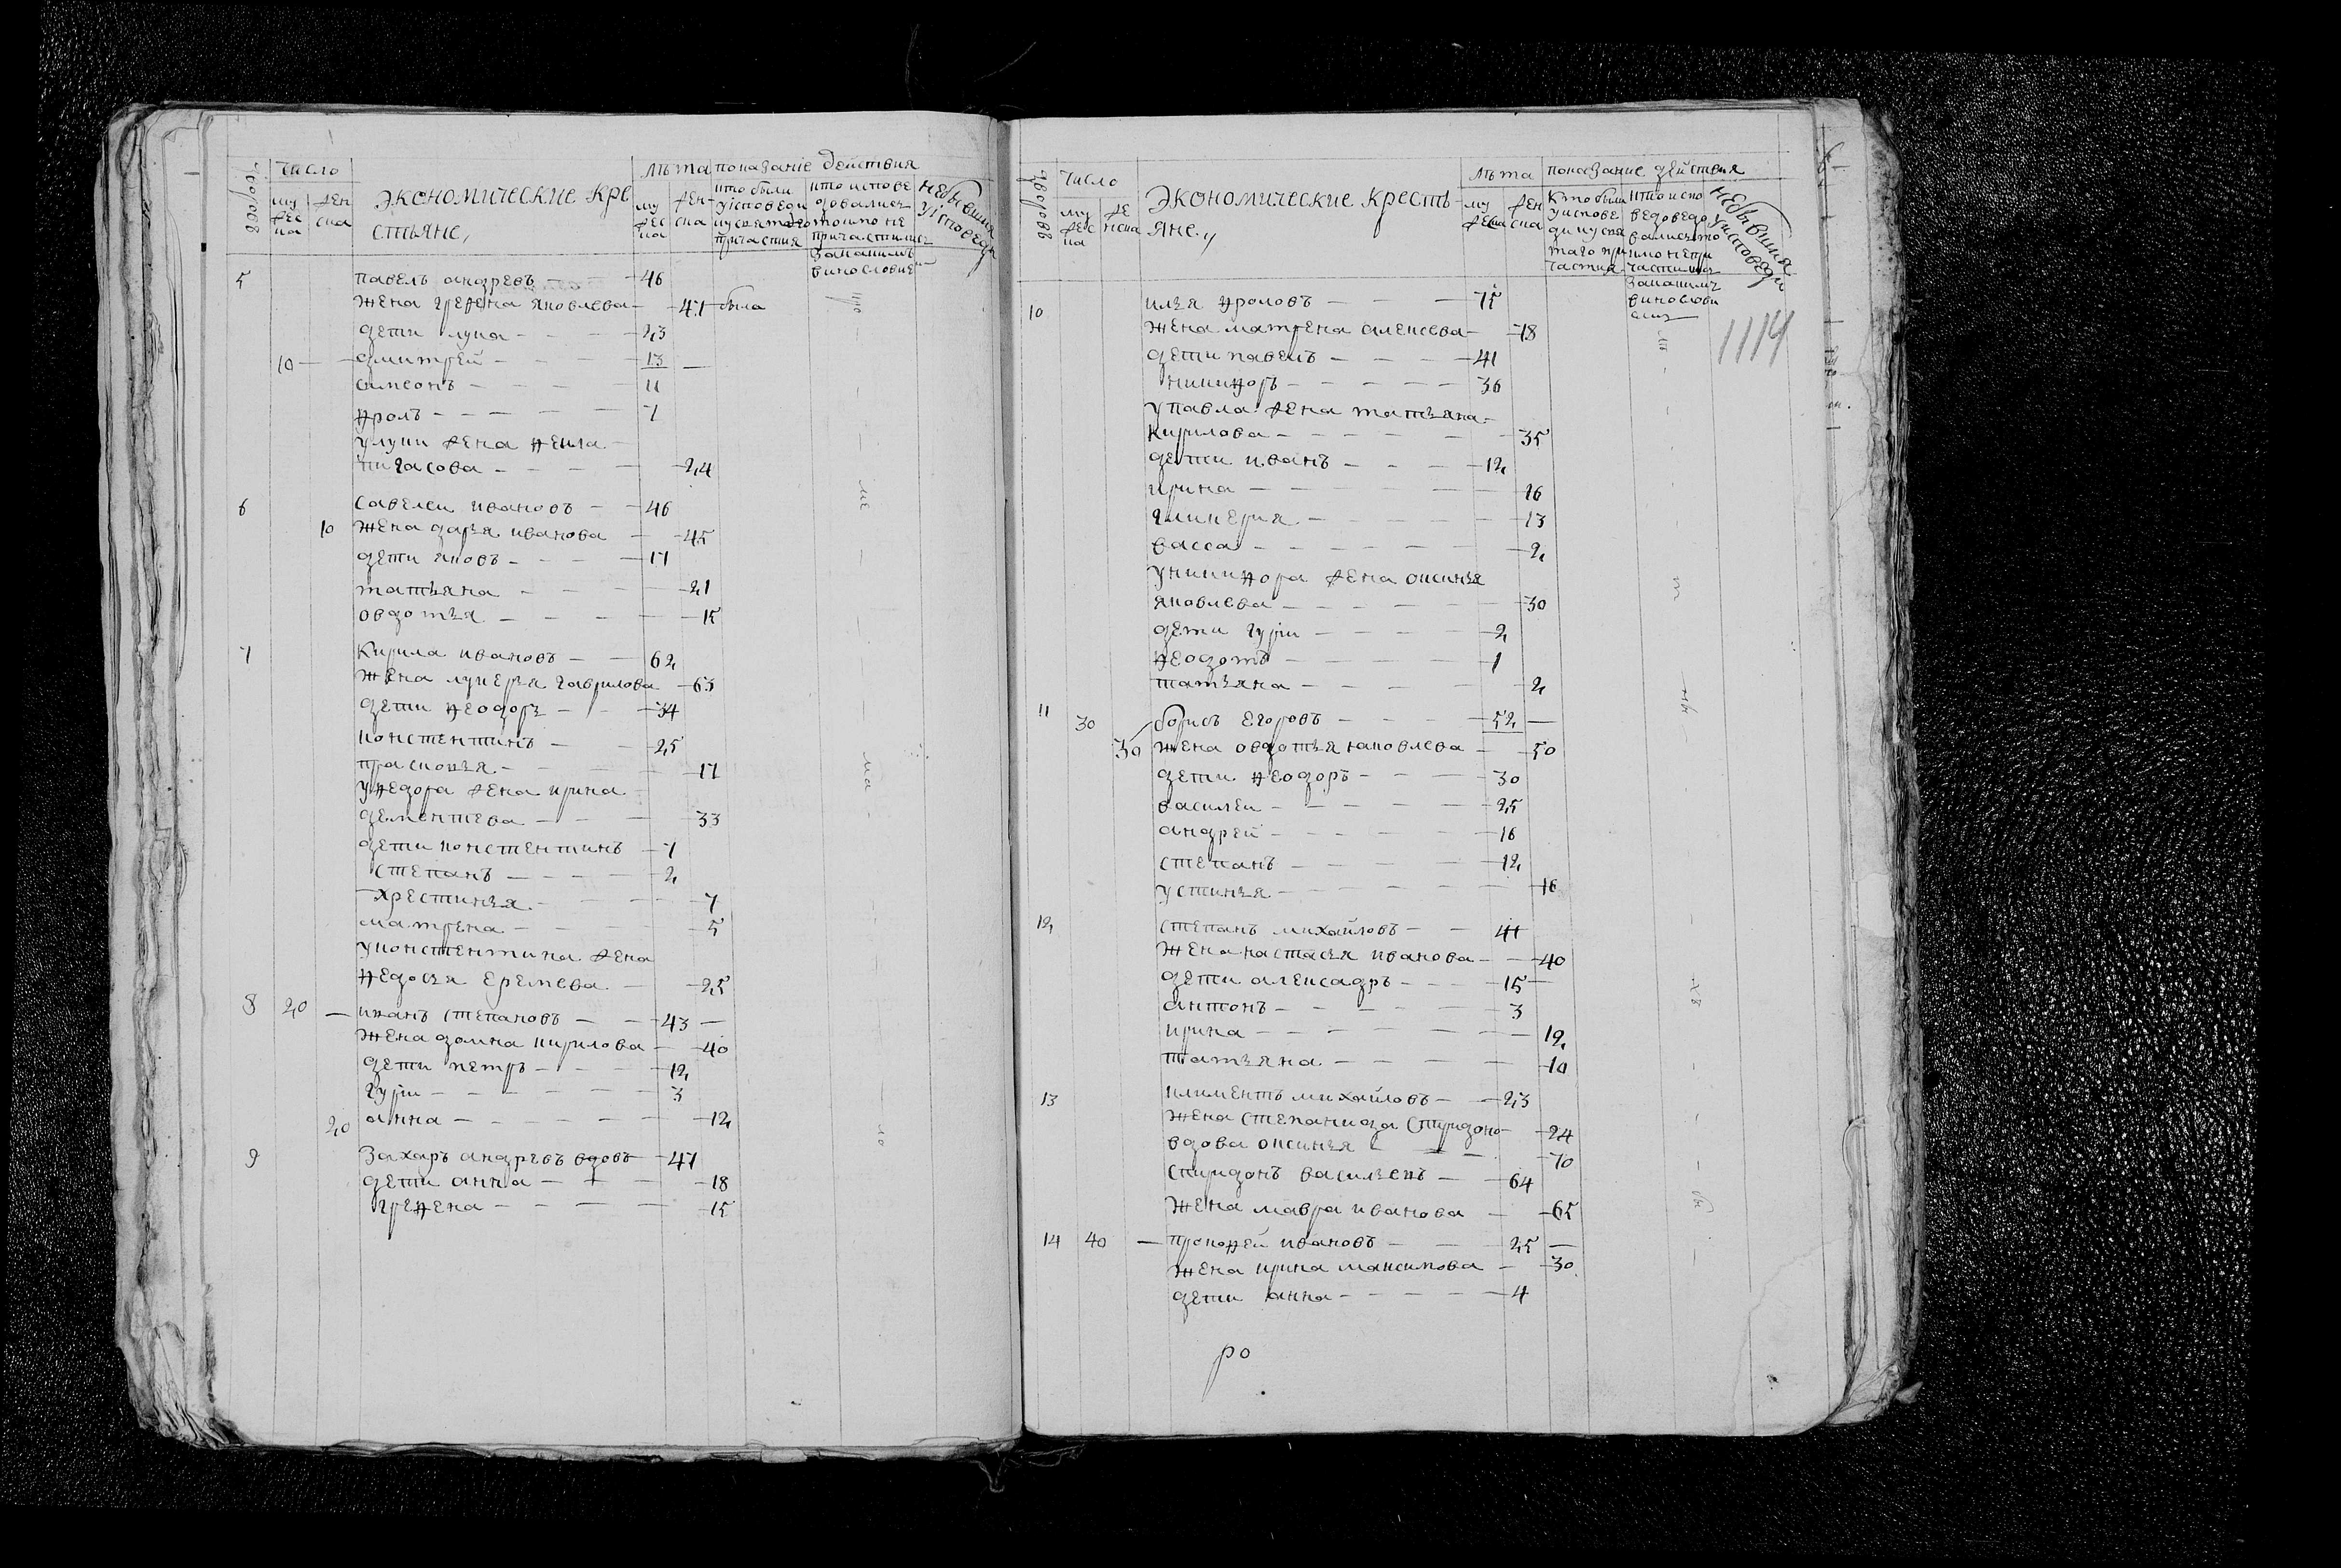 дворовъ
число
му
жес
ка
жен
ска
экономические кре
стьяне,
лѣта показаніе действия
му
жес
ка
жен
ска
кто были
уісповеди
и у святаго
причастия
кто испове
довались
токмо не
причастились
закакимъ
винословіем
небывшия
уісповеди
5 павелъ андревъ — 46
жена грефена яковлева — 47 была
дети лука — 23
10 — дмитрей — 13 —
симеонъ — 11
фролъ — 7
улуки жена фекла
пигасова — 24
6 савелеи ивановъ — 46
10 жена дарья иванова — 45
дети яковъ — 17
татьяна — 21
овдотья — 15
7 Кирила ивановъ — 62
жена лукерья гаврилова — 63
дети феодоръ — 34
константинъ — 25
прасковья — 17
уфедора жена ирина
дементева — 33
дети константинъ — 7
степанъ — 2
хрестинья — 7
матрена — 5
уконстентина жена
федосья еремева — 25
8 20 — иванъ степановъ — 43 —
жена домна кирилова — 40
дети петръ — 12
гури — 3
20 анна — 12
9 Захаръ андревъ вдовъ — 47
дети анна — 18
грефена — 15
дворовъ
число
му
жес
ка
же
нска
экономические кресть-
яне,,
лѣта показание действия
му
жеска
жен
ска
кто были
уиспове
ди иусвя
таго при
частия
кто испо
ведоведо
вались то
кмо непри
частились
закакимъ
винослови
емъ
небывшия
уисповеди
1114
10 илья фроловъ — 75
жена матрена алексева — 78
дети павелъ — 41
никифоръ — 36
упавла жена татьяна
кирилова — 35
дети иванъ — 12
ирина — 16
гликерия — 13
васса — 2
уникифора жена оксинья
яковлева — 30
дети гури — 2
феодотъ — 1
татьяна — 2
11 30 борисъ егоровъ — 52 —
30 жена овдотья яковлева — 50
дети феодоръ — 30
василеи — 25
андрей — 16
степанъ — 12
устинья — 16
12 степанъ михайловъ — 41
жена настасья иванова — 40
дети алексадръ — 15 —
антонъ — 3
ирина — 12
татьяна — 10
13 климентъ михайловъ — 23
жена степанида спиридоно — 24
вдова оксинья — 70
спиридонъ васильевъ — 64
жена мавра иванова — 65
14 40 — прокофей ивановъ — 25 —
жена ирина максимова — 30
дети анна — 4
ро